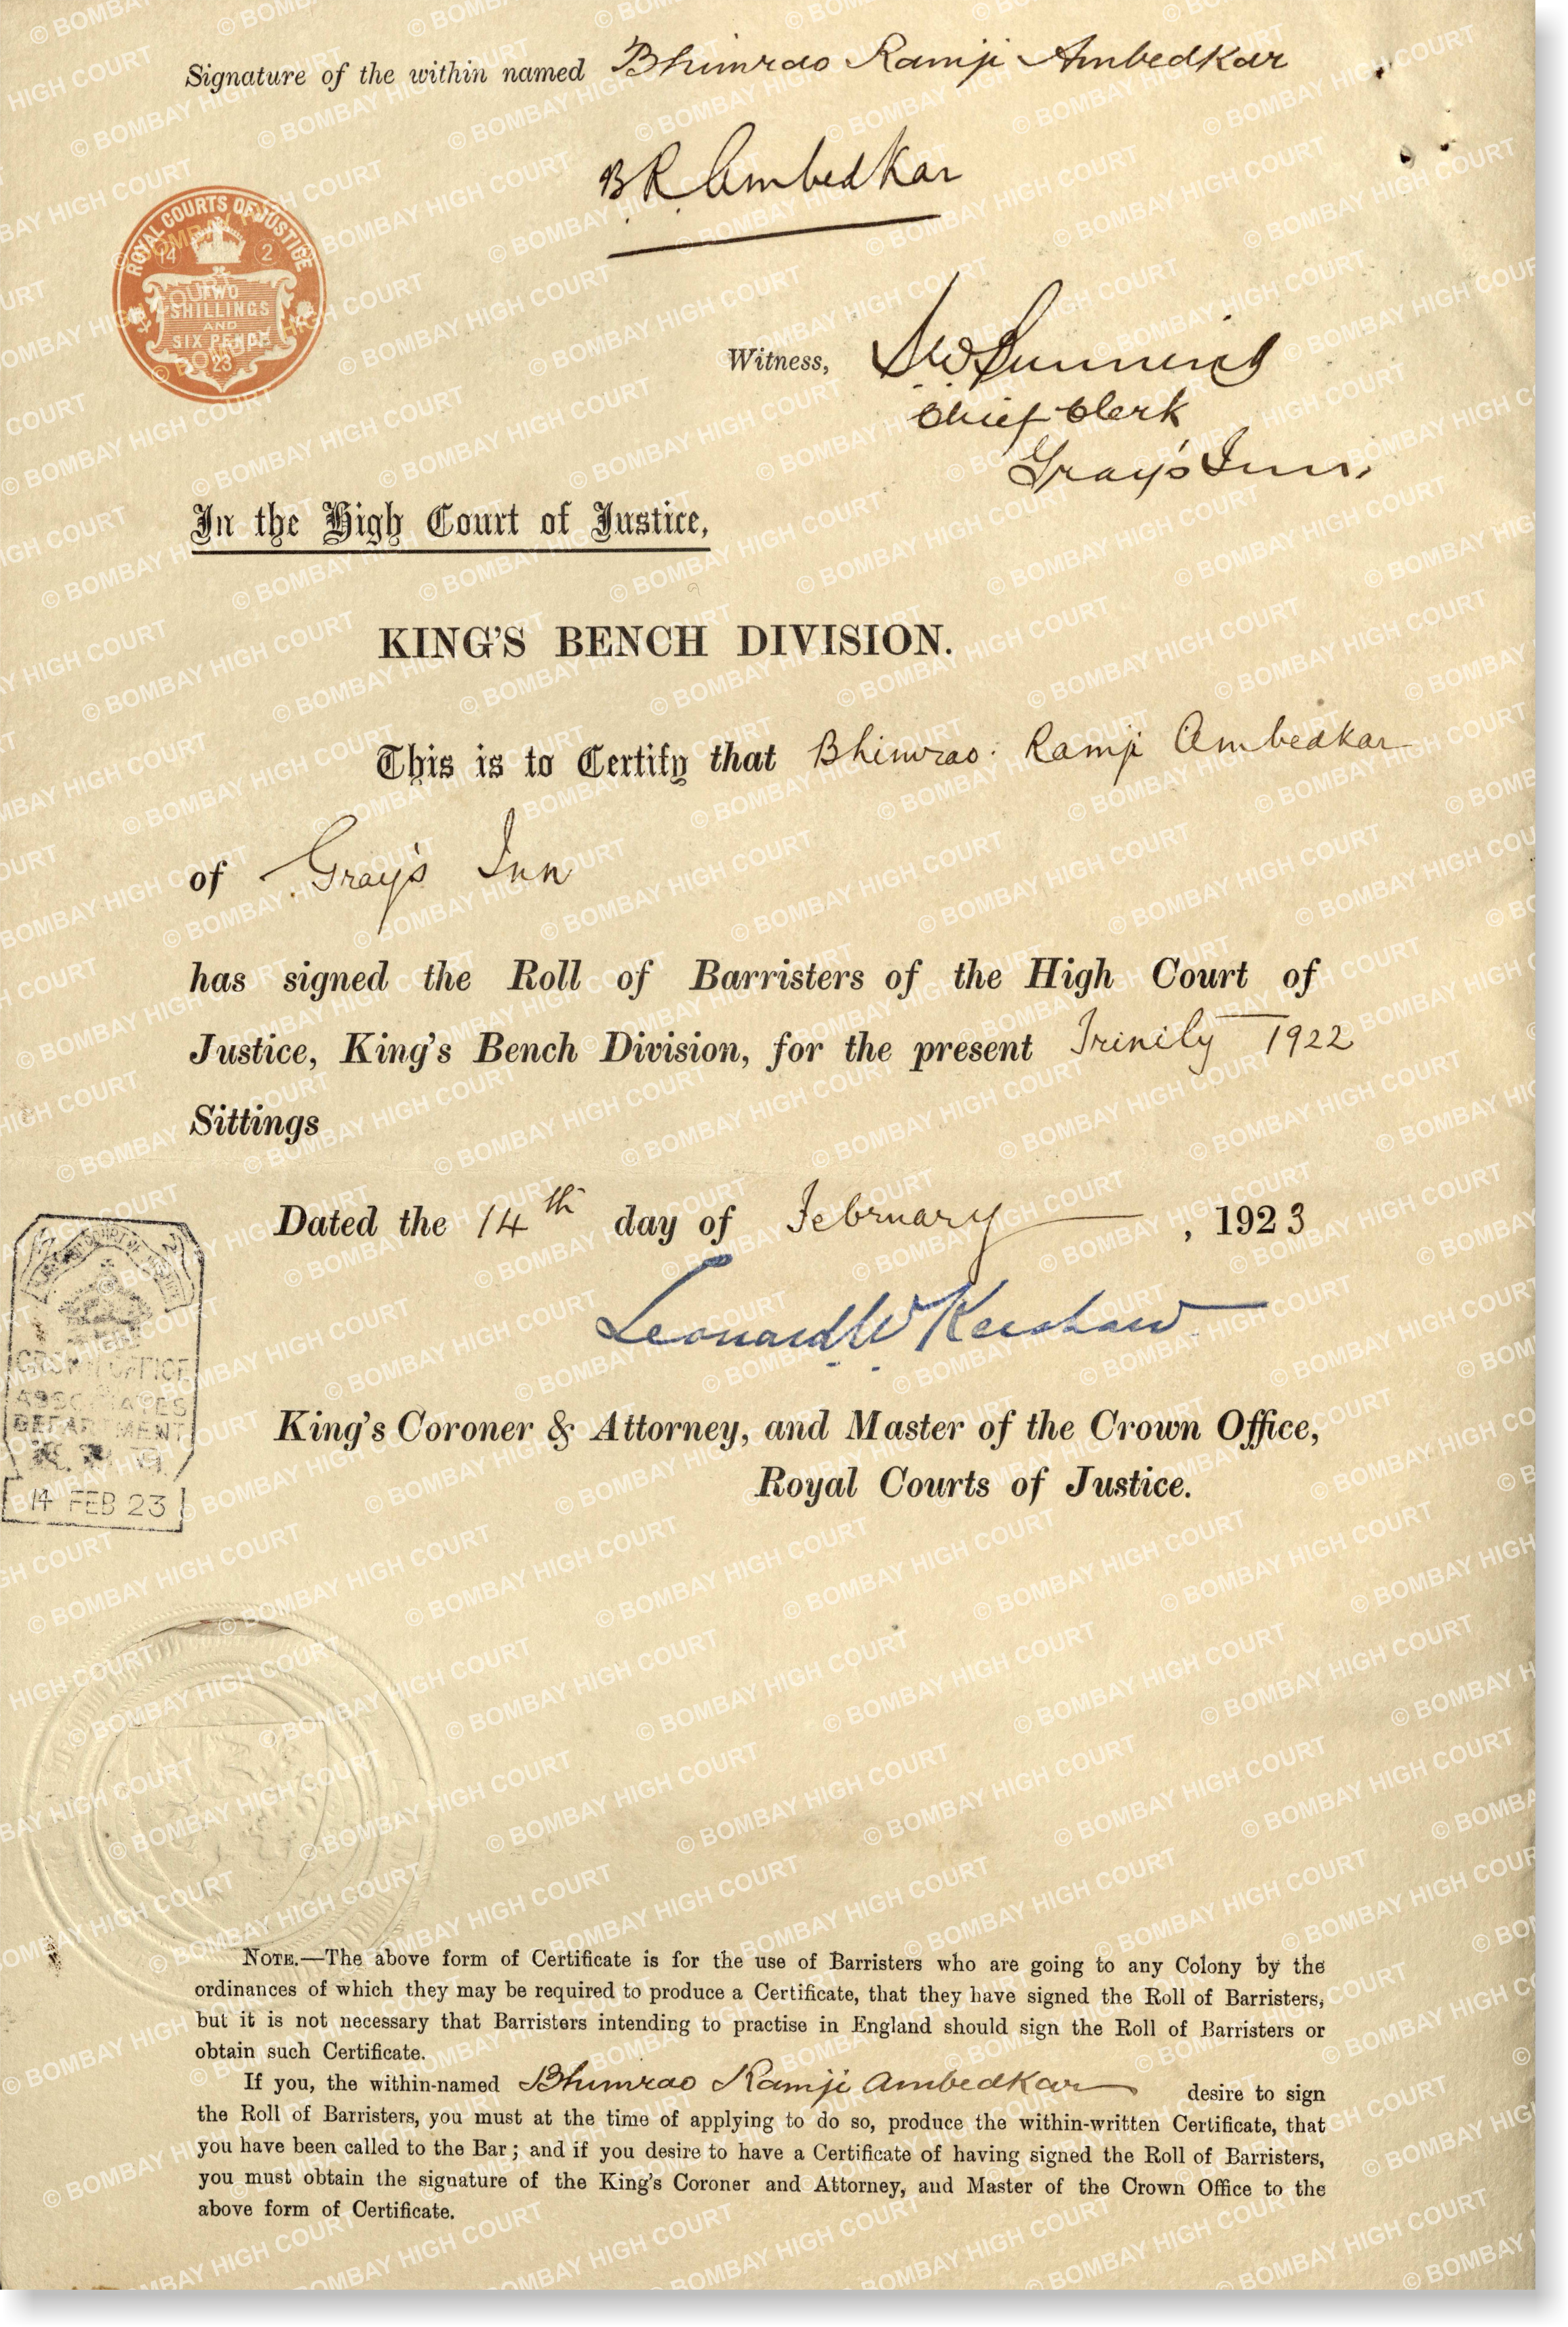 Signature of the within named Bhimrao Ramji Ambedkar
B R Ambedkar
ROYAL COURTS OF JUSTICE
14 2
TWO
SHILLINGS
AND
SIX PENCE
23
Witness,
Chief Clerk
Gray's Inn.
In the High Court of Justice,
KING'S BENCH DIVISION.
This is to Certify that Bhimrao Ramji Ambedkar
of Gray's Inn
has signed the Roll of Barristers of the High Court of
Justice, King's Bench Division, for the present Trinity 1922
Sittings
Dated the 14th day of February, 1923
Leonard W Kershaw
King's Coroner & Attorney, and Master of the Crown Office,
Royal Courts of Justice.
CROWN OFFICE
ASSOCIATES
DEPARTMENT
14 FEB 23
NOTE.—The above form of Certificate is for the use of Barristers who are going to any Colony by the
ordinances of which they may be required to produce a Certificate, that they have signed the Roll of Barristers,
but it is not necessary that Barristers intending to practise in England should sign the Roll of Barristers or
obtain such Certificate.
If you, the within-named Bhimrao Ramji Ambedkar desire to sign
the Roll of Barristers, you must at the time of applying to do so, produce the within-written Certificate, that
you have been called to the Bar; and if you desire to have a Certificate of having signed the Roll of Barristers,
you must obtain the signature of the King's Coroner and Attorney, and Master of the Crown Office to the
above form of Certificate.
© BOMBAY HIGH COURT